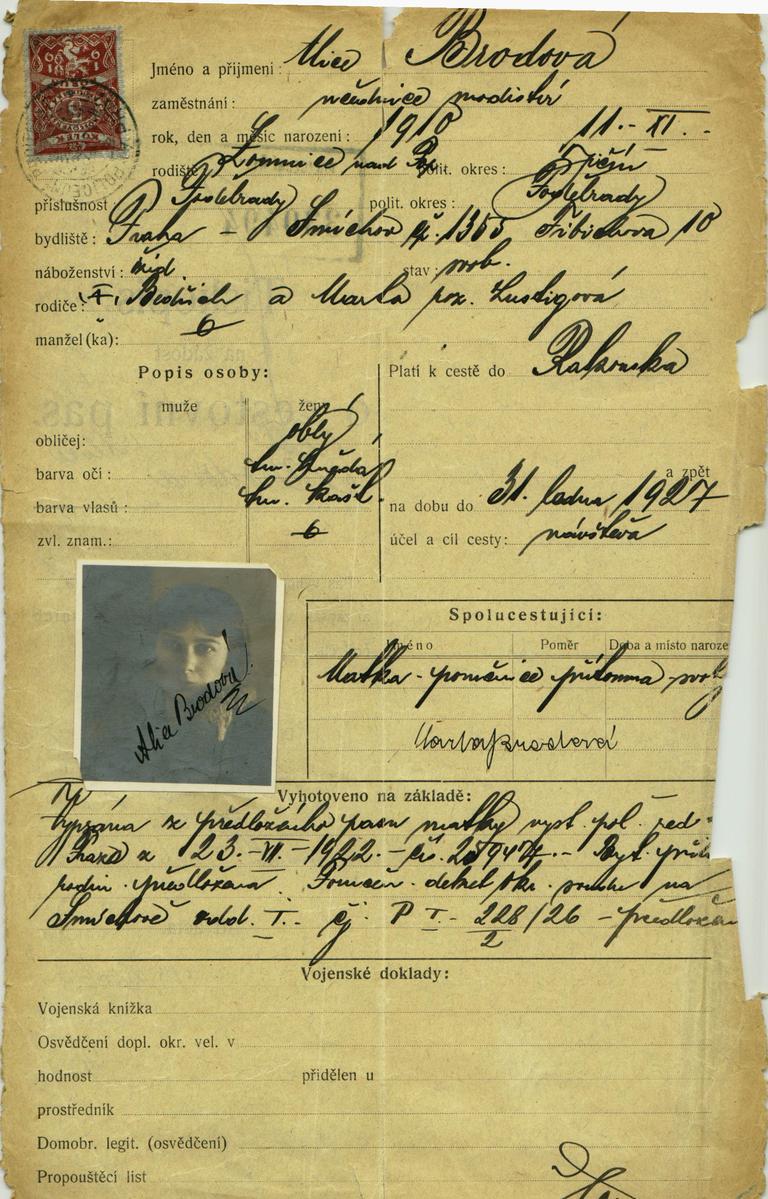 Jméno a příjmení: Alice Brodová
zaměstnání: učednice modiství
rok, den a měsíc narození: 1910 11.- XI.-
rodiště Lomnice nad P. polit. okres: Jičín
příslušnost Poděbrady polit. okres: Poděbrady
bydliště: Praha - Smíchov čp. 1355 Fibichova 10
náboženství: žid. stav: svob.
rodiče: Bedřich a Marta roz. Lustigová
manžel(ka):
Popis osoby:
Platí k cestě do Rakouska
muže ženy
obličej: oblý
barva očí: tm. hnědá
a zpět
barva vlasů: tm. kašt.
na dobu do 31. ledna 1927
zvl. znam.:
účel a cíl cesty: návštěva
Alice Brodová
Spolucestující:
Jméno Poměr Doba a místo naroze
Matka - poručnice přítomna
Marta Brodová
Vyhotoveno na základě:
předloženého pasu matky vyst. pol. řed.
Praze z 23.-VII.-1922.- čís.
rodin. předložena. Poručen. dekret okr. soudu na
Smíchově odd. I.- čj. P I.- 228/26 - předložen
2
Vojenské doklady:
Vojenská knížka
Osvědčení dopl. okr. vel. v
hodnost přidělen u
prostředník
Domobr. legit. (osvědčení)
Propouštěcí list